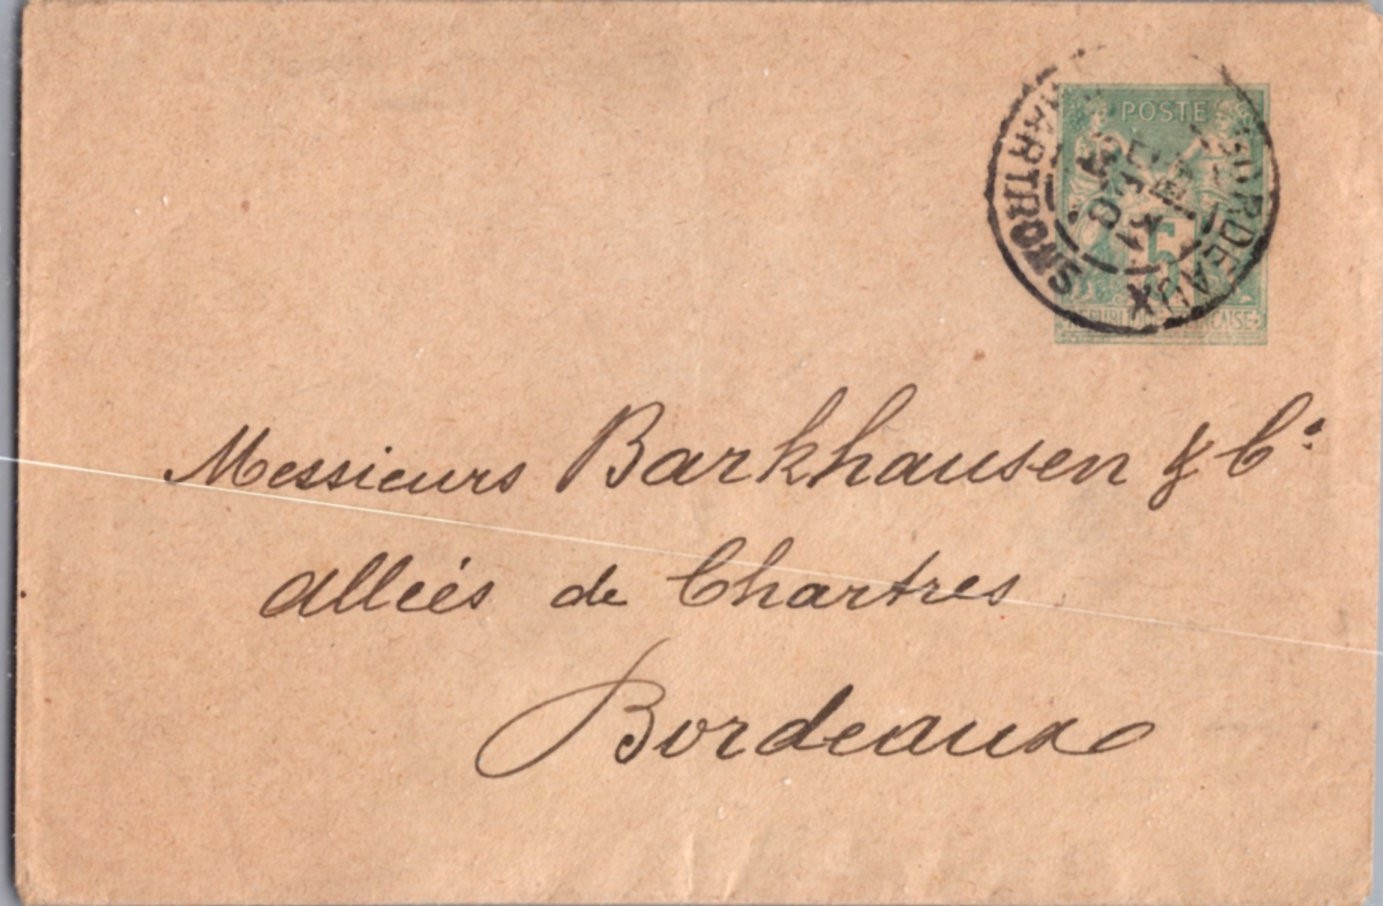 POSTE
5
REPUBLIQUE FRANCAISE
BORDEAUX
CHARTRONS
Messieurs Barkhausen & Cie
alleés de Chartres
Bordeaux